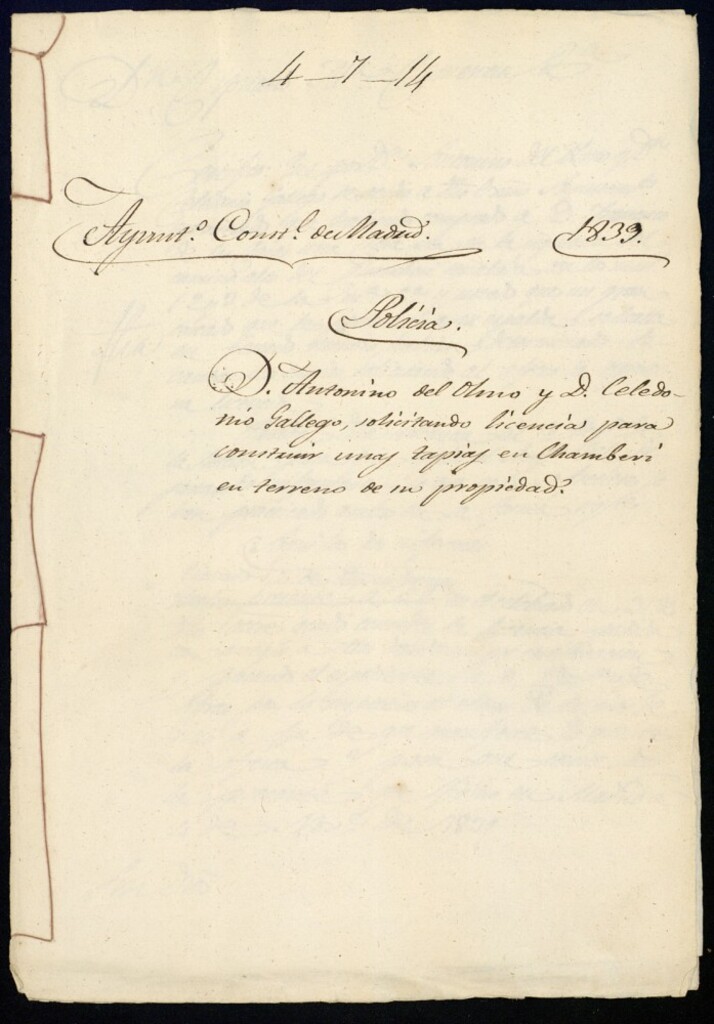 4-7-14
Ayunt.º Const.l de Madrid. 1839.
Policía.
D. Antonino del Olmo y D. Celedo-
nio Gallego, solicitando licencia para
construir unas tapias en Chamberi
en terreno de su propiedad.